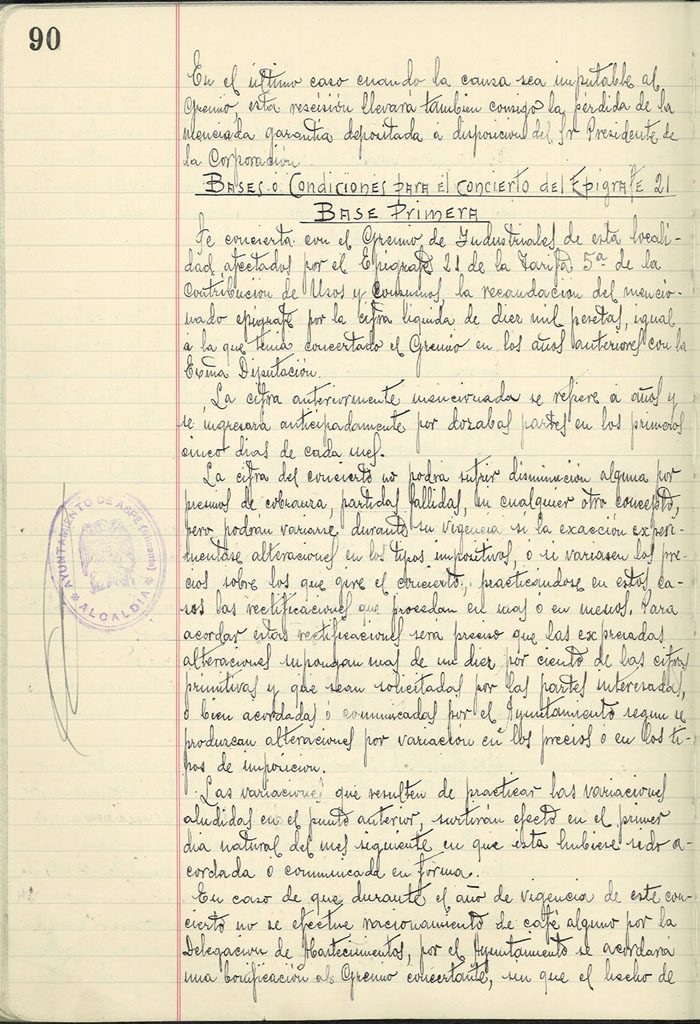 90
En el último caso cuando la causa sea imputable al
Gremio, esta rescisión llevara tambien consigo la pérdida de la
menciada garantia depositada a disposicion del Sr Presidente de
la Corporación
BASES o CONDICIONES PARA El CONCIERTO DEL EPIGRAFE 21
BASE PRIMERA
Se concierta con el Gremio de Industriales de esta locali-
dad, afectados por el Epigrafe 21 de la Tarifa 5ª de la
Contribucion de Usos y Consumos, la recaudacion del mencio-
nado epigrafe por la cifra liquida de diez mil pesetas, igual
a la que tenia concertado el Gremio en los años anteriores con la
Exma Diputación.
La cifra anteriormente mencionada se refiere a años y
se ingresará anticipadamente por dozabas partes en los primeros
cinco dias de cada mes.
La cifra del concierto no podrá sufrir disminución alguna por
premios de cobranza, partidas fallidas, ni cualquier otro concepto,
pero podrán variarse durante su vigencia si la exacción experi-
mentase alteraciones en los tipos impositivos, o si variasen los pre-
cios sobre los que gire el concierto, practicándose en estos ca-
sos las rectificaciones que procedan en mas o en menos. Para
acordar estas rectificaciones será preciso que las expresadas
alteraciones supongan mas de un diez por ciento de las cifras
primitivas y que sean solicitadas por las partes interesadas,
o bien acordadas ó comunicadas por el Ayuntamiento segun se
produzcan alteraciones por variación en los precios o en los ti-
pos de imposicion.
Las variaciones que resulten de practicar las variaciones
aludidas en el punto anterior, surtirán efecto en el primer
dia natural del mes siguiente en que esta hubiese sido a-
cordada o comunicada en forma.
En caso de que durante el año de vigencia de este con-
cierto no se efectue racionamiento de café alguno por la
Delegacion de Abastecimientos, por el Ayuntamiento se acordara
una bonificación al Gremio concertante, sin que el hecho de
AYUNTAMIENTO DE ASPE (Alicante)
* ALCALDIA *